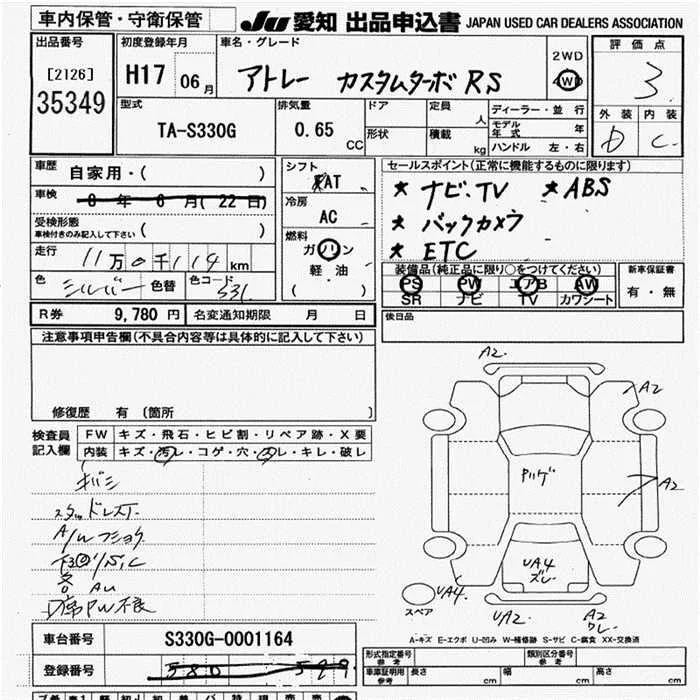 車内保管・守衛保管
JU 愛知 出品申込書 JAPAN USED CAR DEALERS ASSOCIATION
出品番号
[2126]
35349
初度登録年月
H17 06月
車名・グレード
アトレー カスタムターボRS
2WD
4WD
評価点
3
外装 内装
D C
型式
TA-S330G
排気量
0.65 CC
ドア
形状
定員 人
積載 kg
ディーラー・並行
モデル年式 年
ハンドル 左・右
車歴 自家用・( )
車検 8年 6月(22日)
受検形態
車検付きのみ記入して下さい ( )
走行 11万0千114km
色 シルバー 色替 色コード S31.
シフト
AT
冷房
AC
燃料
ガソリン
軽・油
( )
セールスポイント(正常に機能するものに限ります)
★ナビ.TV ★ABS
★バックカメラ
★ETC
装備品(純正品に限り○をつけてください)
PS PW エアB AW
SR ナビ TV カワシート
新車保証書
有・無
R券 9,780円 名変通知期限 月 日
後日品
注意事項申告欄(不具合内容等は具体的に記入して下さい)
修復歴 有 (箇所 )
検査員記入欄
FW キズ・飛石・ヒビ割・リペア跡・X要
内装 キズ・汚レ・コゲ・穴・スレ・キレ・破レ
キバミ
スタッドレスT.
A/Wフショク
下回りS.C
各AU
D席PW不良
A2.
A2
A2
UA4
ズレ
UA4.
スペア
UA2.
A2
ワレ
A-キズ E-エクボ U-凹み W-補修跡 S-サビ C-腐食 XX-交換済
車台番号 S330G-0001164
登録番号 580 599
形式指定番号
参考
類別区分番号
参考
車庫証明用
参考
長さ cm 幅 cm 高さ cm